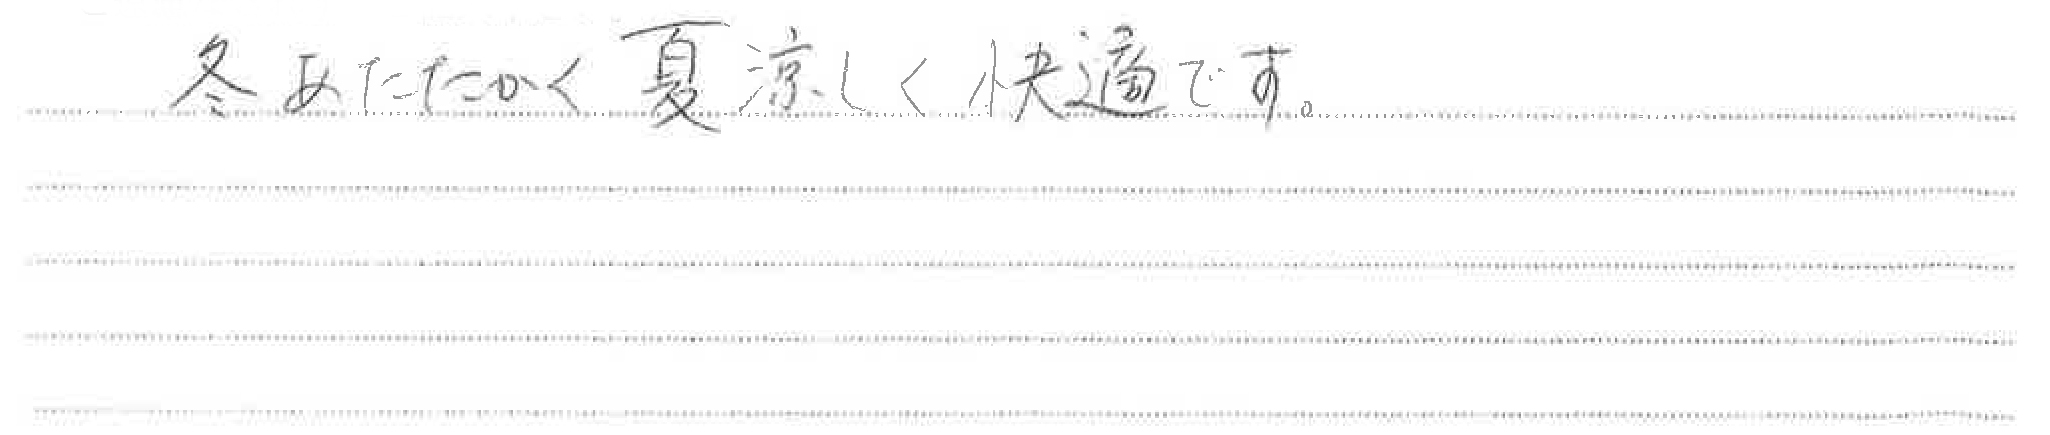 冬あたたかく夏涼しく快適です。